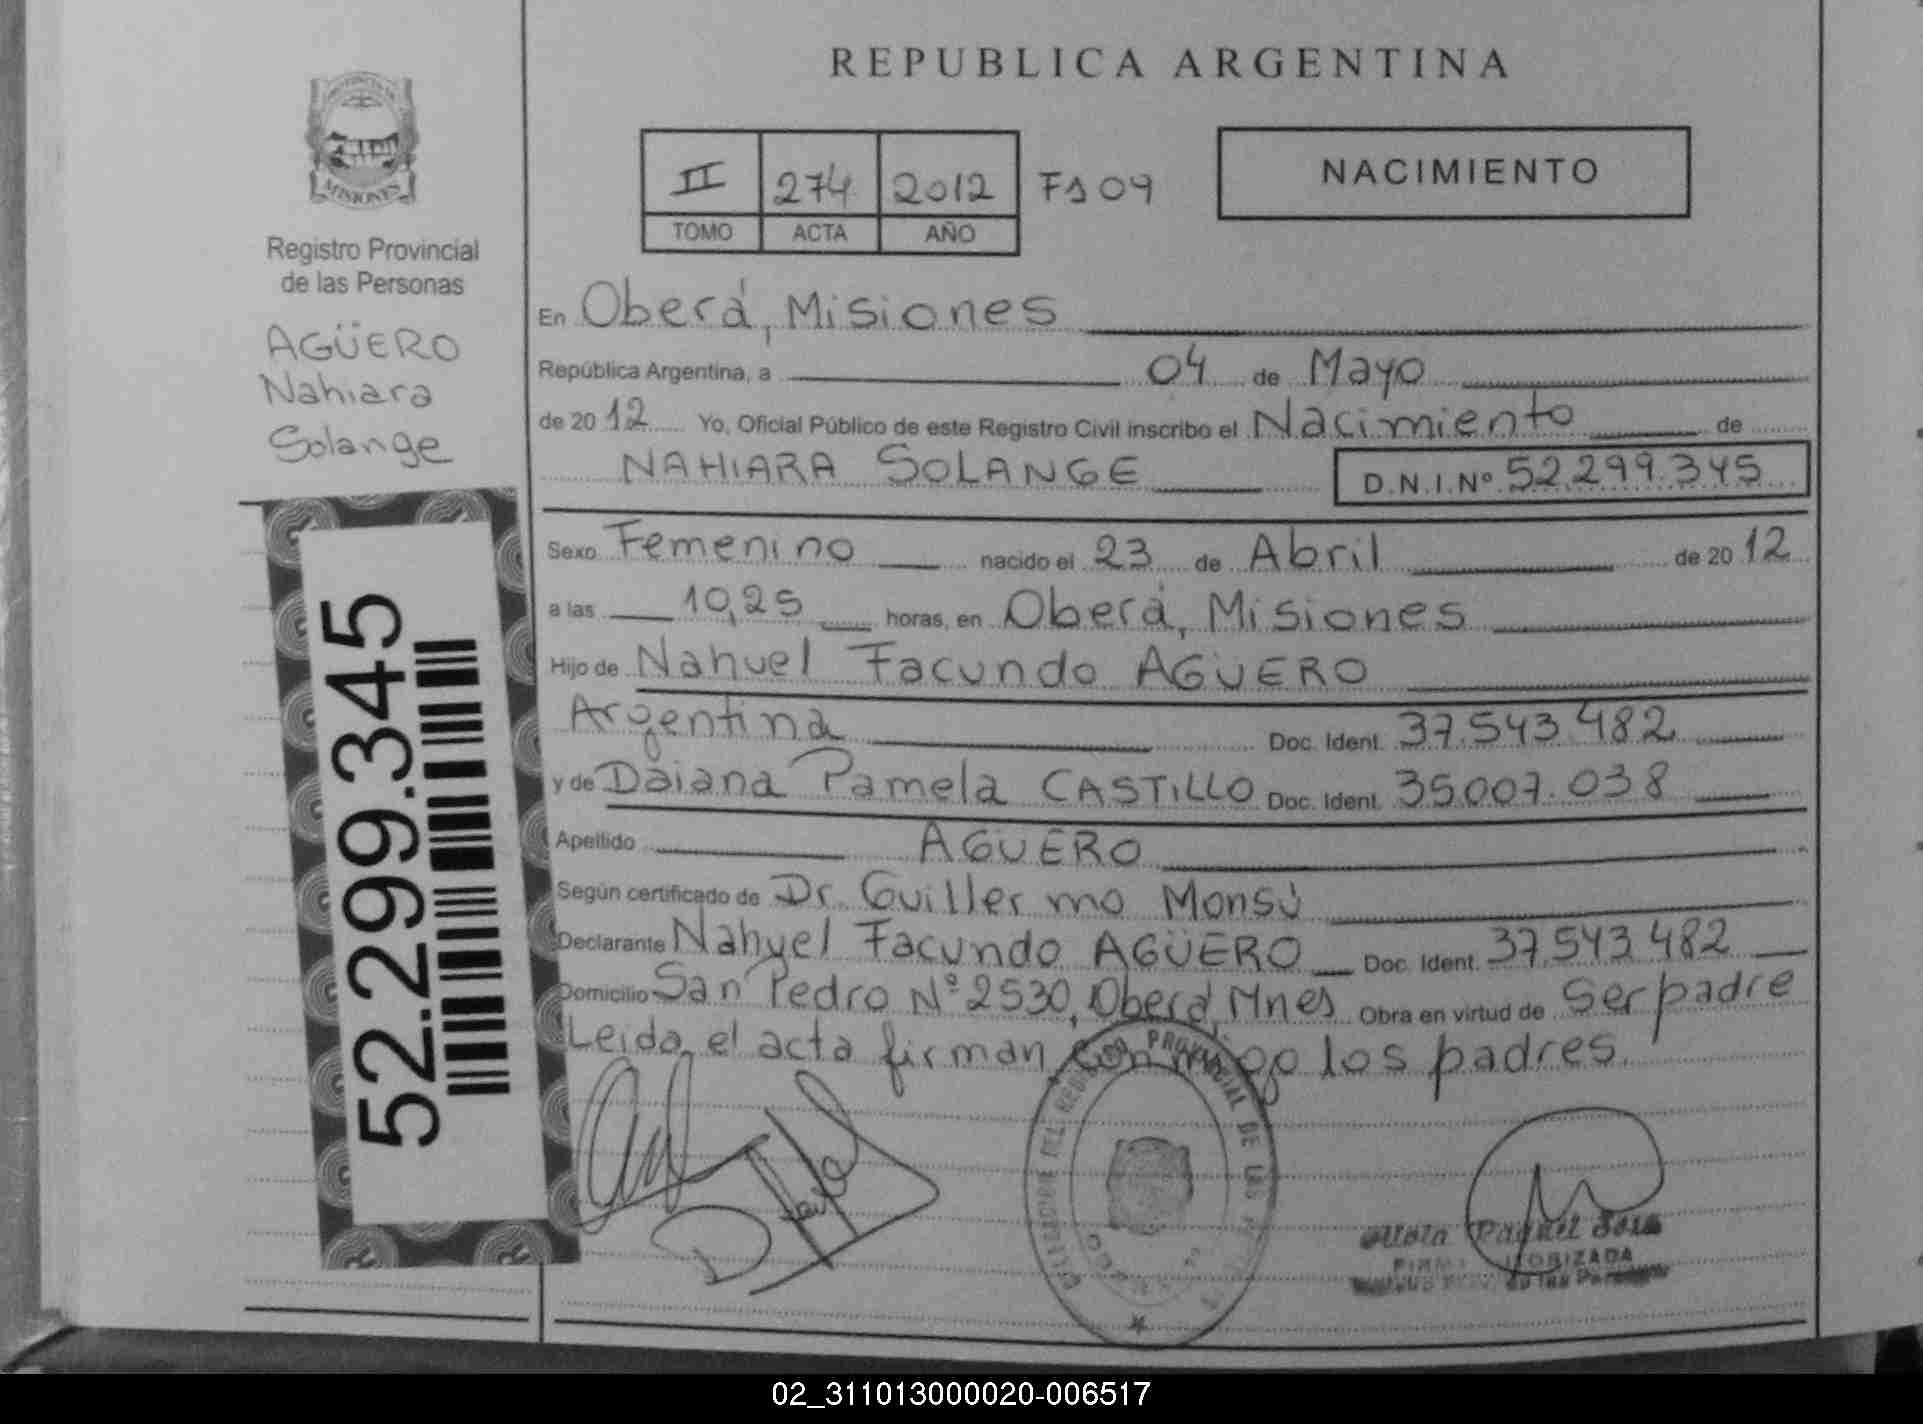 REPUBLICA ARGENTINA
MISIONES
Registro Provincial
de las Personas
AGÜERO
Nahiara
Solange
II 274 2012 Fs 09
TOMO ACTA AÑO
NACIMIENTO
En Oberá, Misiones
República Argentina, a 04 de Mayo
de 2012 Yo, Oficial Público de este Registro Civil inscribo el Nacimiento de
NAHIARA SOLANGE D.N.I.Nº 52.299.345
Sexo Femenino nacido el 23 de Abril de 2012
a las 10,25 horas, en Oberá, Misiones
Hijo de Nahuel Facundo AGÜERO
Argentina Doc. Ident. 37.543.482
y de Daiana Pamela CASTILLO Doc. Ident. 35.007.038
Apellido AGÜERO
Según certificado de Dr. Guillermo Monsú
Declarante Nahuel Facundo AGÜERO Doc. Ident. 37.543.482
Domicilio San Pedro Nº 2530, Oberá, Mnes Obra en virtud de Ser padre
Leida el acta firman conmigo los padres.
52.299.345
DEL REGISTRO PROVINCIAL DE LAS
Raquel
02_311013000020-006517